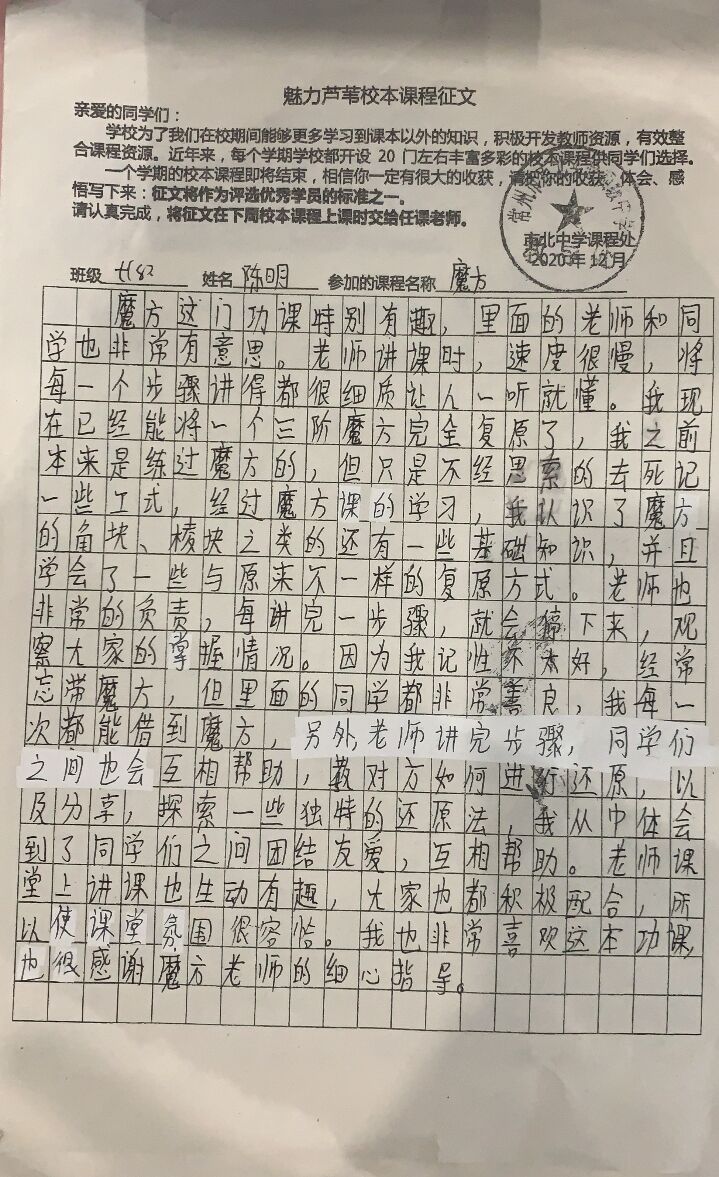 魅力芦苇校本课程征文
亲爱的同学们：
学校为了我们在校期间能够更多学习到课本以外的知识，积极开发教师资源，有效整
合课程资源。近年来，每个学期学校都开设 20 门左右丰富多彩的校本课程供同学们选择。
一个学期的校本课程即将结束，相信你一定有很大的收获，请把你的收获、体会、感
悟写下来：征文将作为评选优秀学员的标准之一。
请认真完成，将征文在下周校本课程上课时交给任课老师。
市北中学课程处
2020 年 12 月
班级 姓名 陈明 参加的课程名称 魔方
魔方这门功课特别有趣，里面的老师和同
学也非常有意思。老师讲课时，速度很慢，将
每一个步骤讲得都很细质让人一听就懂。我现
在已经能将一个三阶魔方完全复原了，我之前
本来是练过魔方的，但只是不经思索的去死记
一些工式，经过魔方课的学习，我认识了魔方
的角块、棱块之类的还有一些基础知识，并且
学会了一些与原来不一样的复原方式。老师也
非常的负责，每讲完一步骤，就会下来，观
察大家的掌握情况。因为我记性不太好，经常
忘带魔方，但里面的同学都非常善良，我每一
次都能借到魔方，另外，老师讲完步骤，同学们
之间也会互相帮助，教对方如何进行还原，以
及分享，探索一些独特的还原法，我从中体会
到了同学们之间团结友爱，互相帮助。老师课
堂上讲课也生动有趣，大家也都积极配合，所
以使课堂氛围很容恰。我也非常喜欢这本功课，
也很感谢魔方老师的细心指导。